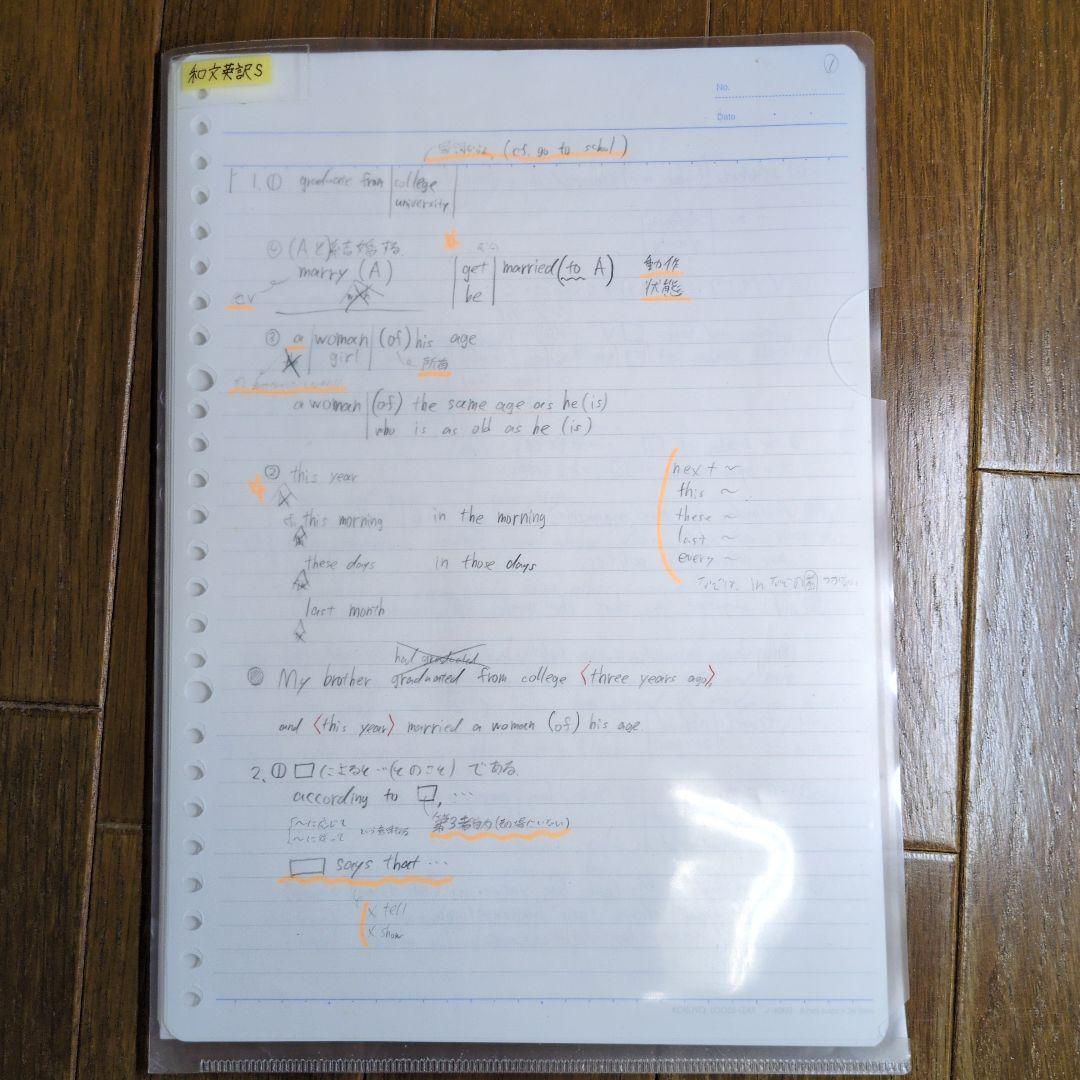 和文英訳S
①
No.
Date
(cf. go to school)
1. ① graduate from college
university
④ (Aと)結婚する
marry (A) get married (to A) 動作
be 状態
③ a woman (of) his age
girl 所有
a woman (of) the same age as he (is)
who is as old as he (is)
② this year
next ~
this ~
cf. this morning in the morning
these ~
last ~
these days in those days
every ~
last month
had graduated
My brother graduated from college 〈three years ago〉,
and 〈this year〉 married a woman (of) his age.
2. ① □によると…(そのこと) である.
according to □, …
~に応じて
~に従って
□ says that …
x tell
x show